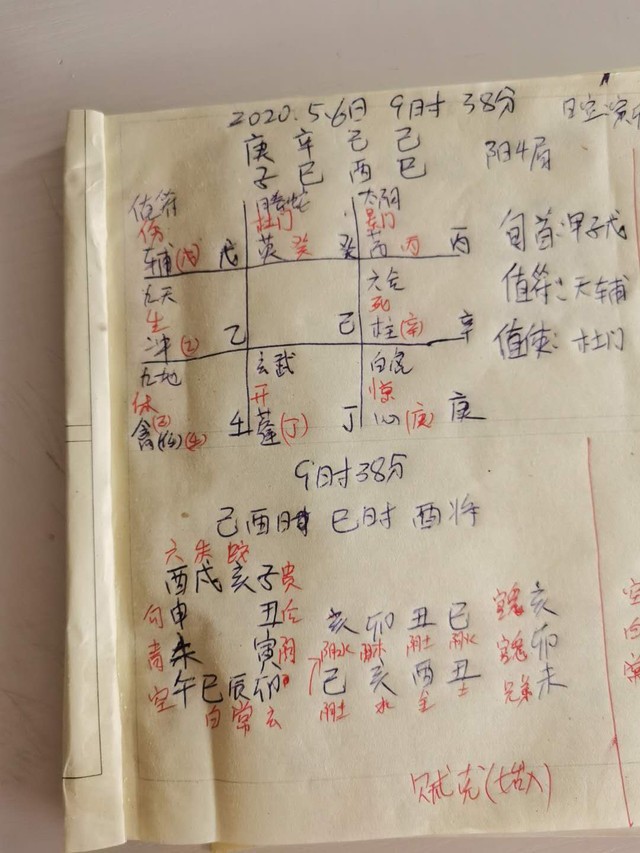 2020.5.6日 9时 38分 日空:寅卯
庚 辛 己 己
子 巳 酉 巳 阳4局
值符 螣蛇 太阴
伤 杜门 景门
辅(戊) 戊 英 癸 癸 芮 丙 丙 旬首:甲子戊
九天 六合 值符:天辅
生 死
冲(乙) 乙 己 柱(辛) 辛 值使:杜门
九地 玄武 白虎
休 开 惊
禽 壬 蓬(丁) 丁 心(庚) 庚
9时38分
己酉日 巳时 酉将
六 朱 蛇
酉 戌 亥 子 贵
勾 申 丑 后 亥 卯 丑 巳 亥
青 未 寅 阴 阴土 卯
空 午 巳 辰 卯 己 亥 酉 丑 兄弟 未
白 常 玄 阴土 水 金 土
贼克(始入)